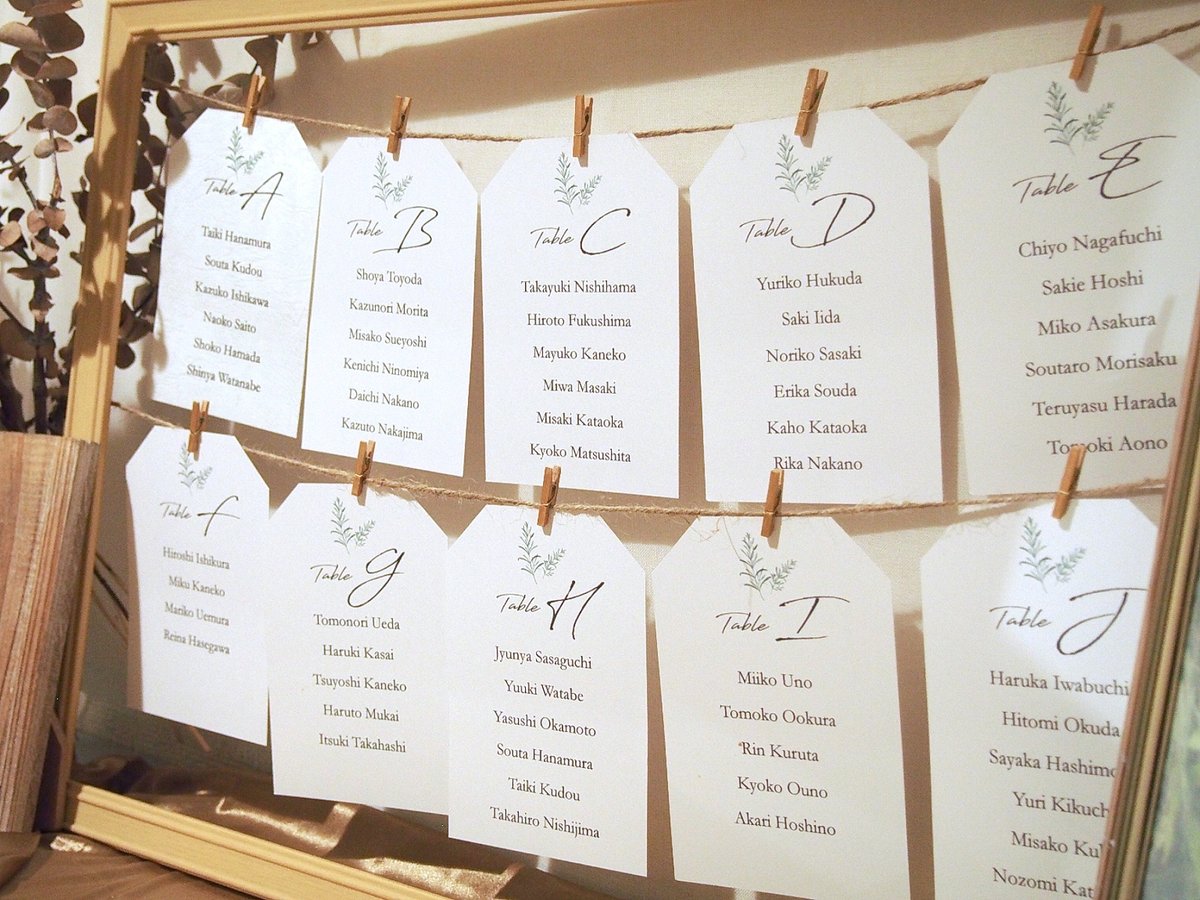 Table A
Taiki Hanamura
Souta Kudou
Kazuko Ishikawa
Naoko Saito
Shoko Hamada
Shinya Watanabe
Table B
Shoya Toyoda
Kazunori Morita
Misako Sueyoshi
Kenichi Ninomiya
Daichi Nakano
Kazuto Nakajima
Table C
Takayuki Nishihama
Hiroto Fukushima
Mayuko Kaneko
Miwa Masaki
Misaki Kataoka
Kyoko Matsushita
Table D
Yuriko Hukuda
Saki Iida
Noriko Sasaki
Erika Souda
Kaho Kataoka
Rika Nakano
Table E
Chiyo Nagafuchi
Sakie Hoshi
Miko Asakura
Soutaro Morisaku
Teruyasu Harada
Aono
Table f
Hiroshi Ishikura
Miku Kaneko
Mariko Uemura
Reina Hasegawa
Table G
Tomonori Ueda
Haruki Kasai
Tsuyoshi Kaneko
Haruto Mukai
Itsuki Takahashi
Table H
Jyunya Sasaguchi
Yuuki Watabe
Yasushi Okamoto
Souta Hanamura
Taiki Kudou
Takahiro Nishijima
Table I
Miiko Uno
Tomoko Ookura
Rin Kuruta
Kyoko Ouno
Akari Hoshino
Table J
Haruka Iwabuchi
Hitomi Okuda
Sayaka
Yuri
Misako
Nozomi